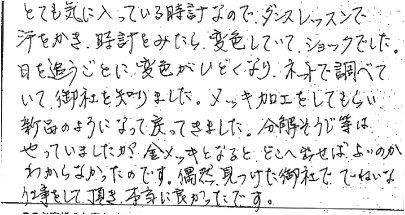 とても気に入っている時計なので、ダンスレッスンで
汗をかき、時計をみたら、変色していて、ショックでした。
日を追うごとに、変色がひどくなり、ネットで調べて
いて、御社を知りました。メッキ加工をしてもらい
新品のようになって戻ってきました。分解そうじ等は
やっていましたが、金メッキとなると、どこへ出せばよいのか
わからなかったのです。偶然、見つけた御社で、ていねいな
仕事をして頂き、本当に良かったです。